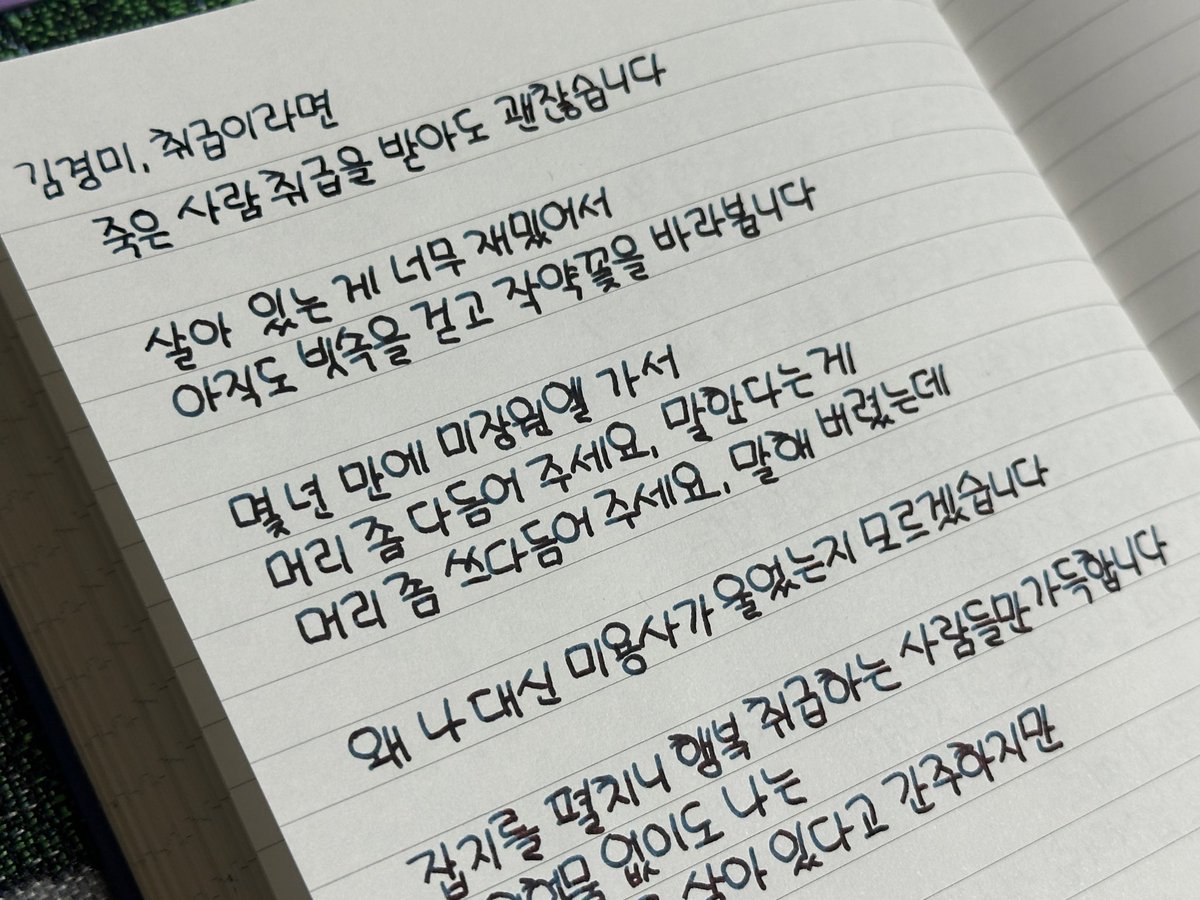 김경미, 취급이라면
죽은 사람 취급을 받아도 괜찮습니다
살아 있는 게 너무 재밌어서
아직도 빗속을 걷고 작약꽃을 바라봅니다
몇 년 만에 미장원엘 가서
머리 좀 다듬어 주세요, 말한다는 게
머리 좀 쓰다듬어 주세요, 말해 버렸는데
왜 나 대신 미용사가 울었는지 모르겠습니다
잡지를 펼치니 행복 취급하는 사람들만 가득합니다
없이도 나는
살아 있다고 간주하지만